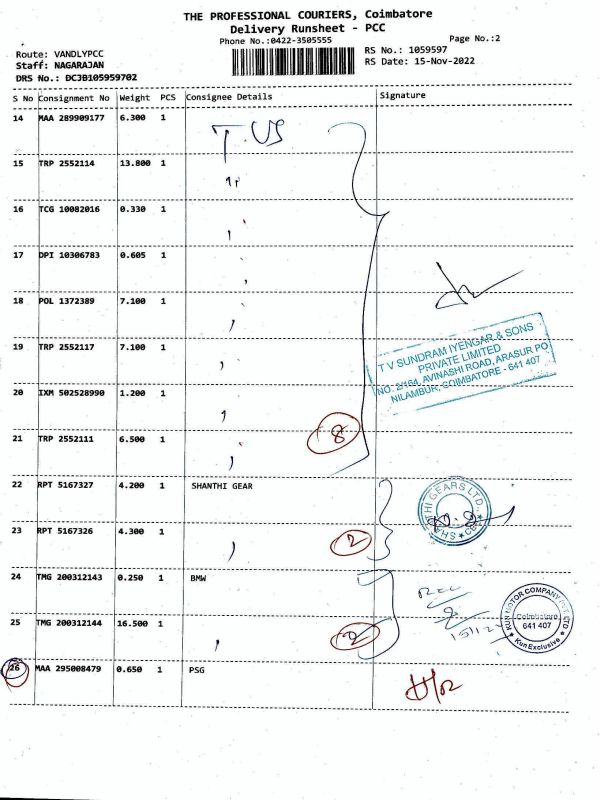 THE PROFESSIONAL COURIERS, Coimbatore
Delivery Runsheet - PCC
Phone No.:0422-3505555
Page No.:2
Route: VANDLYPCC
RS No.: 1059597
Staff: NAGARAJAN
RS Date: 15-Nov-2022
DRS No.: DCJB105959702
S No Consignment No Weight PCS Consignee Details Signature
14 MAA 289909177 6.300 1 T.VS
15 TRP 2552114 13.800 1
16 TCG 10082016 0.330 1
17 DPI 10306783 0.605 1
18 POL 1372389 7.100 1
19 TRP 2552117 7.100 1
T V SUNDRAM IYENGAR & SONS
PRIVATE LIMITED
NO. 2/164, AVINASHI ROAD, ARASUR PO
NILAMBUR, COIMBATORE - 641 407
20 IXM 502528990 1.200 1
8
21 TRP 2552111 6.500 1
22 RPT 5167327 4.200 1 SHANTHI GEAR
23 RPT 5167326 4.300 1 2
24 TMG 200312143 0.250 1 BMW
KUN MOTOR COMPANY PVT. LTD
Coimbatore
641 407
Kun Exclusive
25 TMG 200312144 16.500 1 2
26 MAA 295008479 0.650 1 PSG